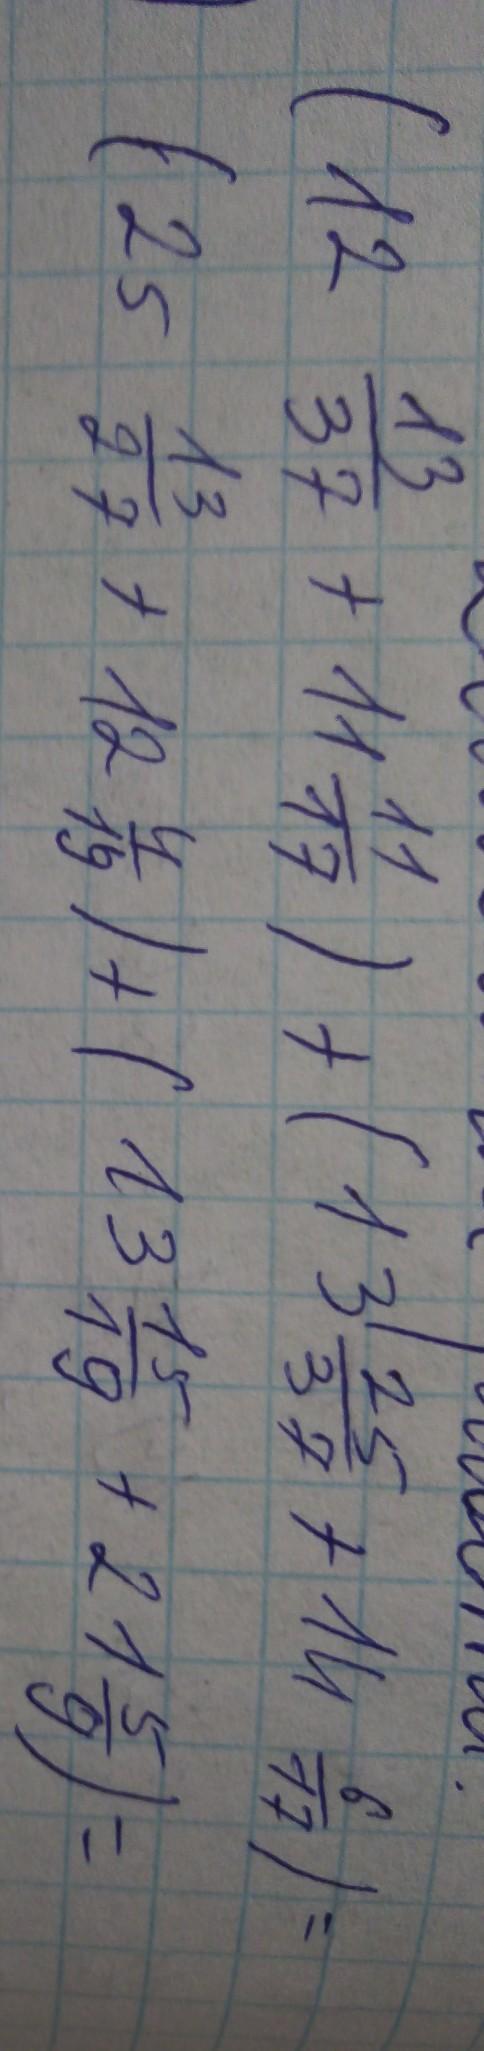 (12 13/37 + 11 11/17) + (13 25/37 + 14 6/17) =
(25 13/27 + 12 4/19) + (13 15/19 + 21 5/9) =